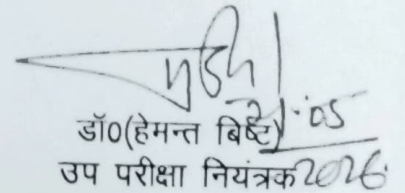 डॉ0(हेमन्त बिष्ट)
उप परीक्षा नियंत्रक 2026